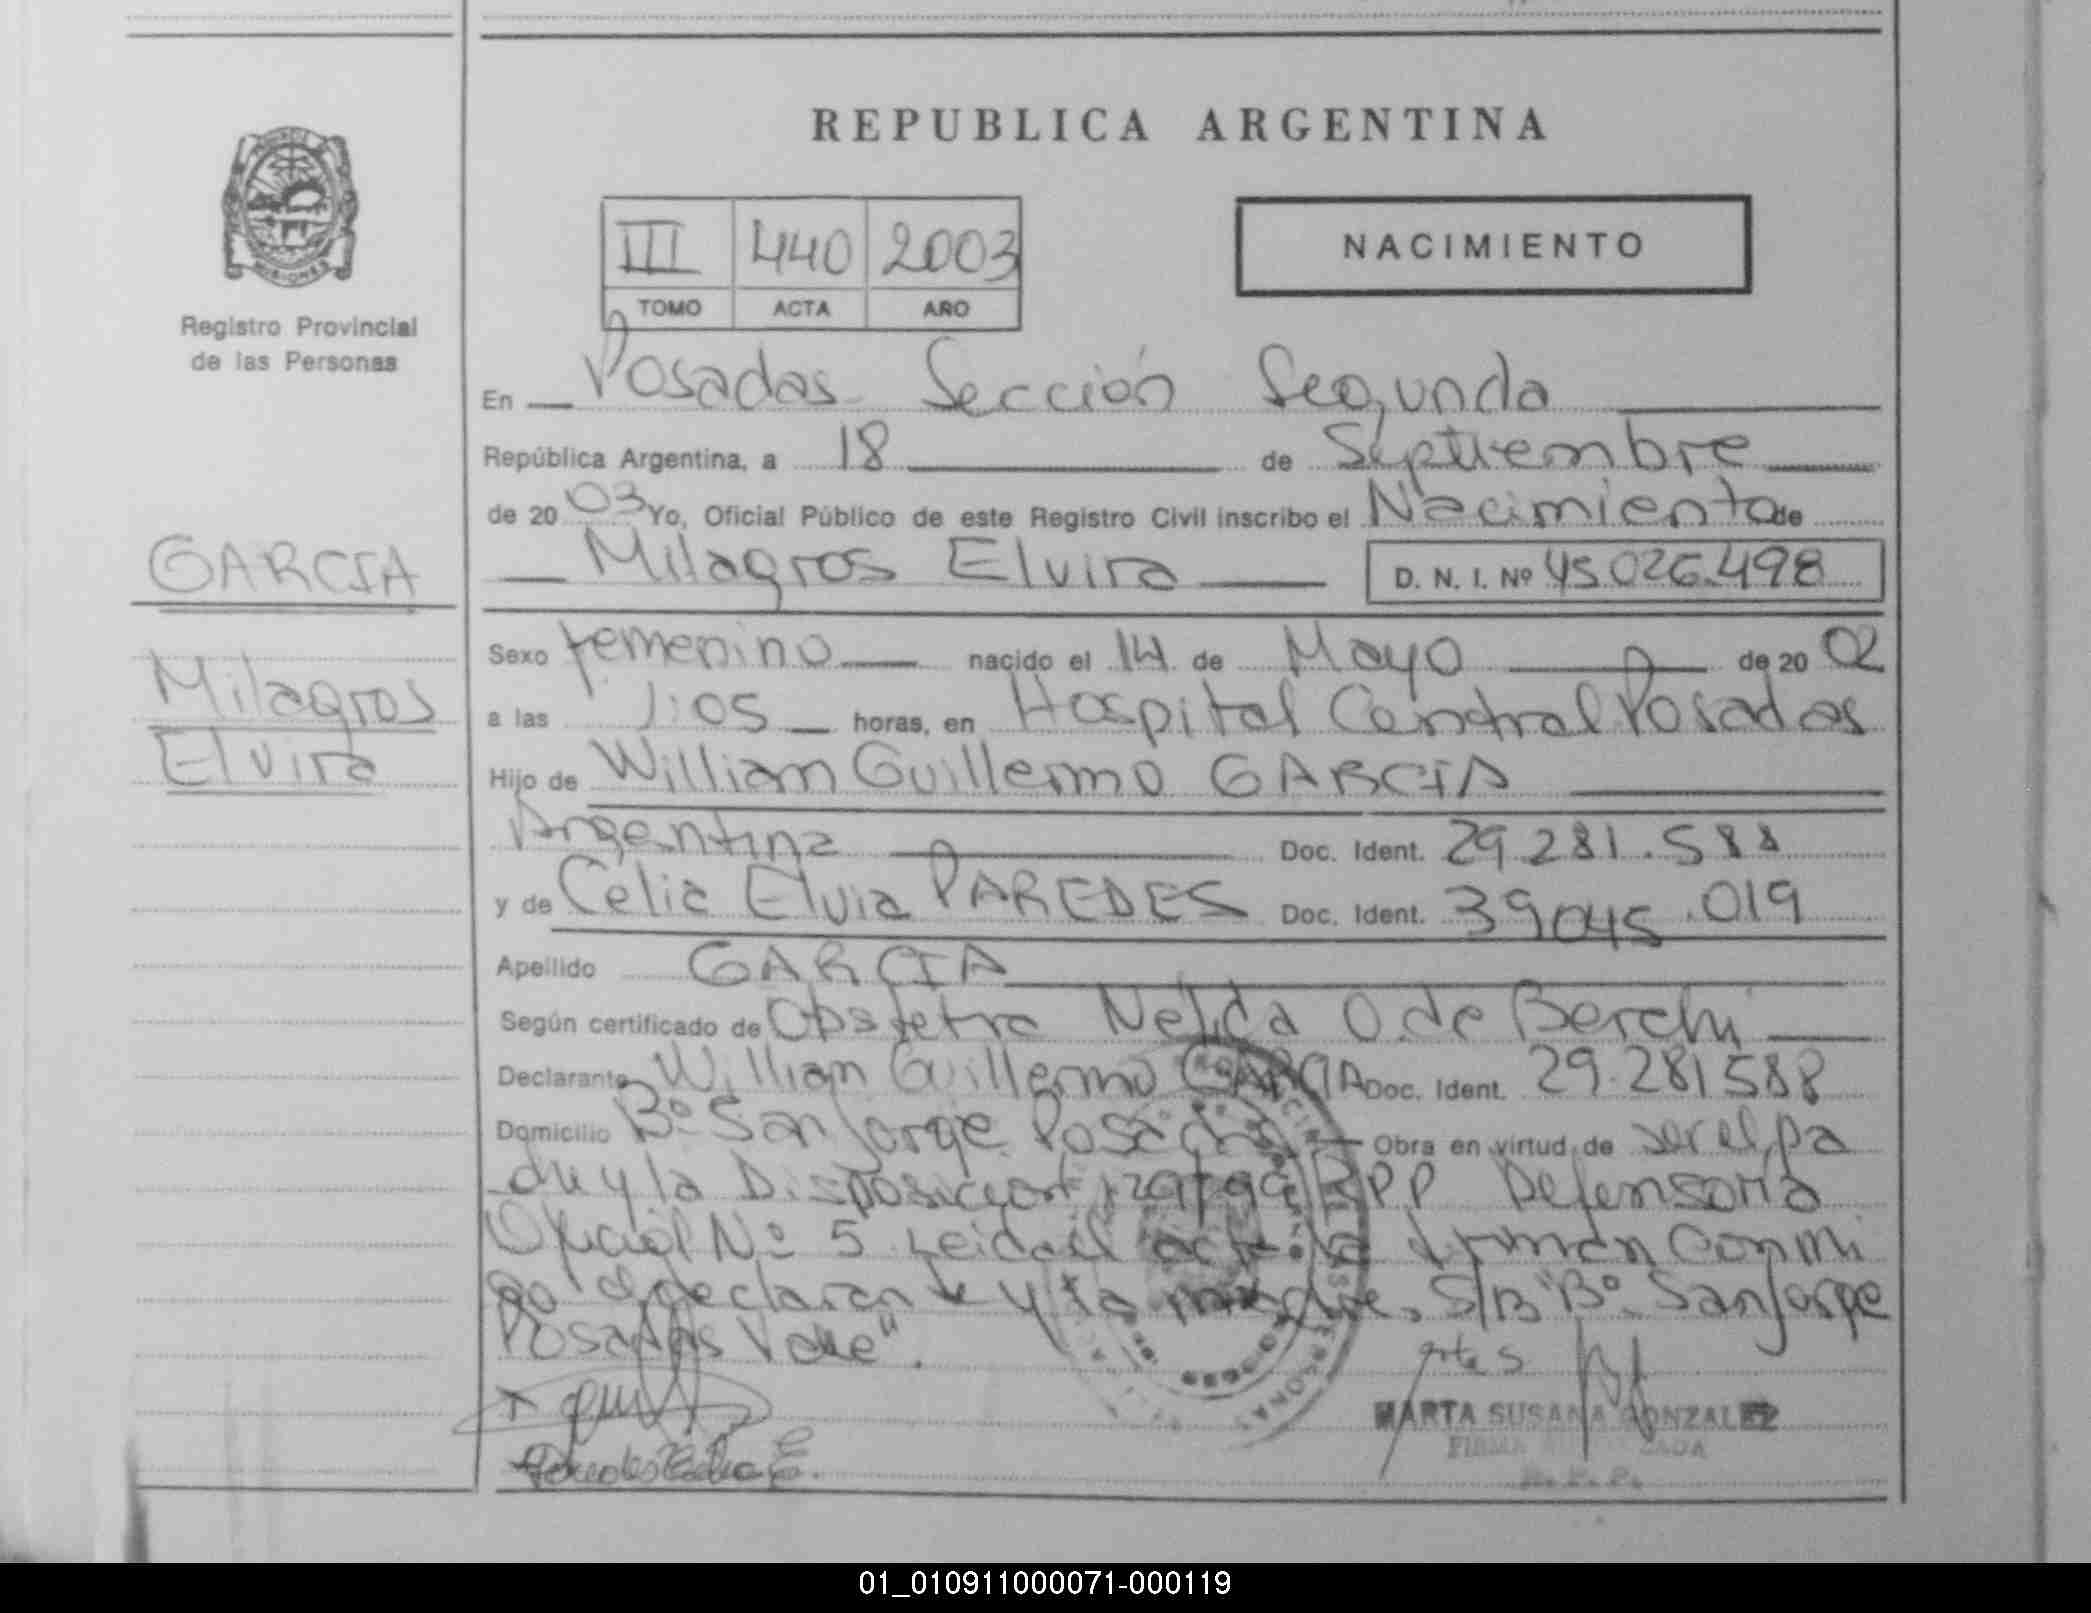 REPUBLICA ARGENTINA
MISIONES
Registro Provincial
de las Personas
III 440 2003
TOMO ACTA AÑO
NACIMIENTO
En Posadas Sección Segunda
República Argentina, a 18 de Septiembre
de 20 03 Yo, Oficial Público de este Registro Civil inscribo el Nacimiento de
Milagros Elvira D. N. I. Nº 45.026.498
GARCIA
Milagros
Elvira
Sexo femenino nacido el 14 de Mayo de 20 02
a las 1:05 horas, en Hospital Central Posadas
Hijo de Willian Guillermo GARCIA
Argentina Doc. Ident. 29.281.588
y de Celia Elvia PAREDES Doc. Ident. 39045.019
Apellido GARCIA
Según certificado de Obstetra Nélida O. de Berchi
Declarante Willian Guillermo GARCIA Doc. Ident. 29.281588
Domicilio Bº San Jorge Posadas Obra en virtud de ser el pa
dre y la Disposicion RPP Defensoria
Oficial Nº 5 Leida el acta la firman conmi
go el declarante y la madre. S/B "Bº San Jorge
Posadas Vale".
MARTA SUSANA GONZALEZ
FIRMA AUTORIZADA
R.P.P.
Paredes Celia E.
01_010911000071-000119